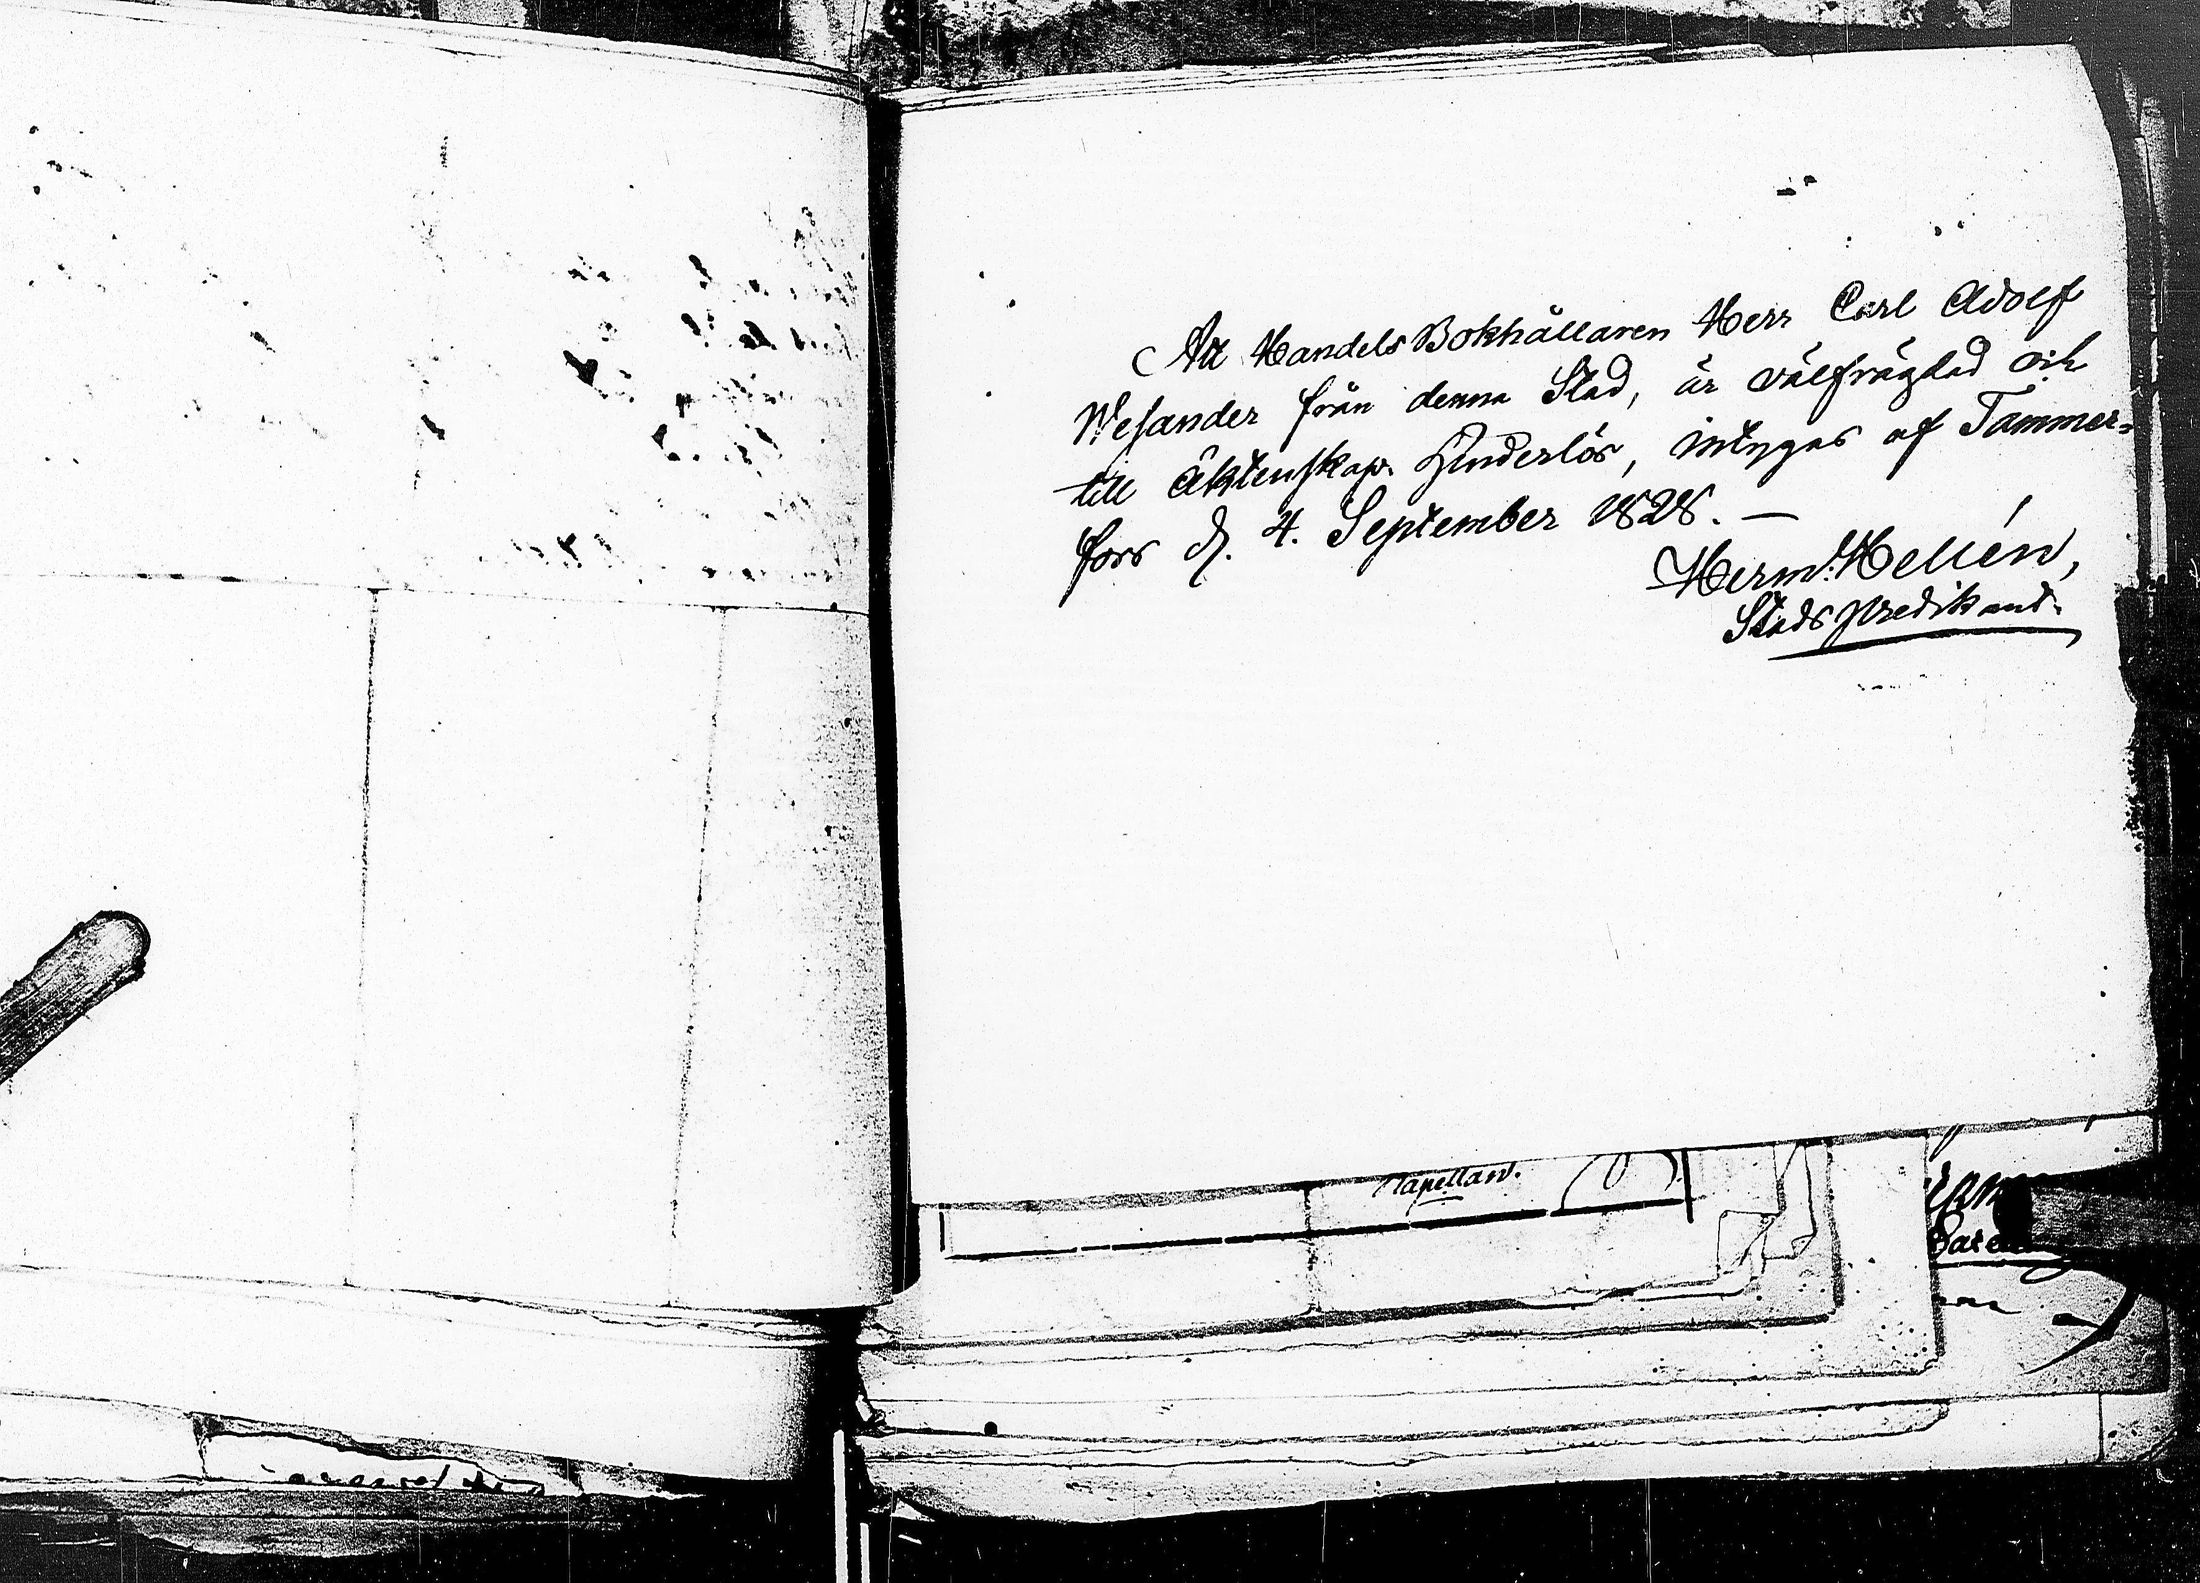 Att Handels Bokhållaren Herr Carl Adolf
Wesander från denna Stad, är välfrägdad och
till äktenskap hinderlös, intygas af Tammer-
fors d. 4. September 1828. —
Herm: Hellén,
Stads Predikant.
Capellan.